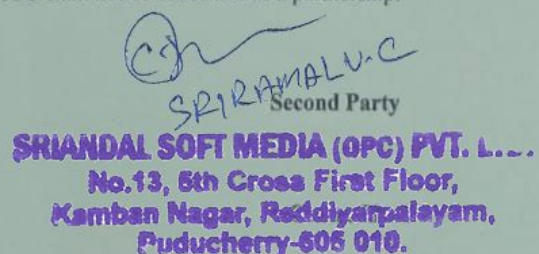 a partnership.
SRIRAMALU.C
Second Party
SRIANDAL SOFT MEDIA (OPC) PVT. L...
No.13, 5th Cross First Floor,
Kamban Nagar, Reddiyarpalayam,
Puducherry-605 010.